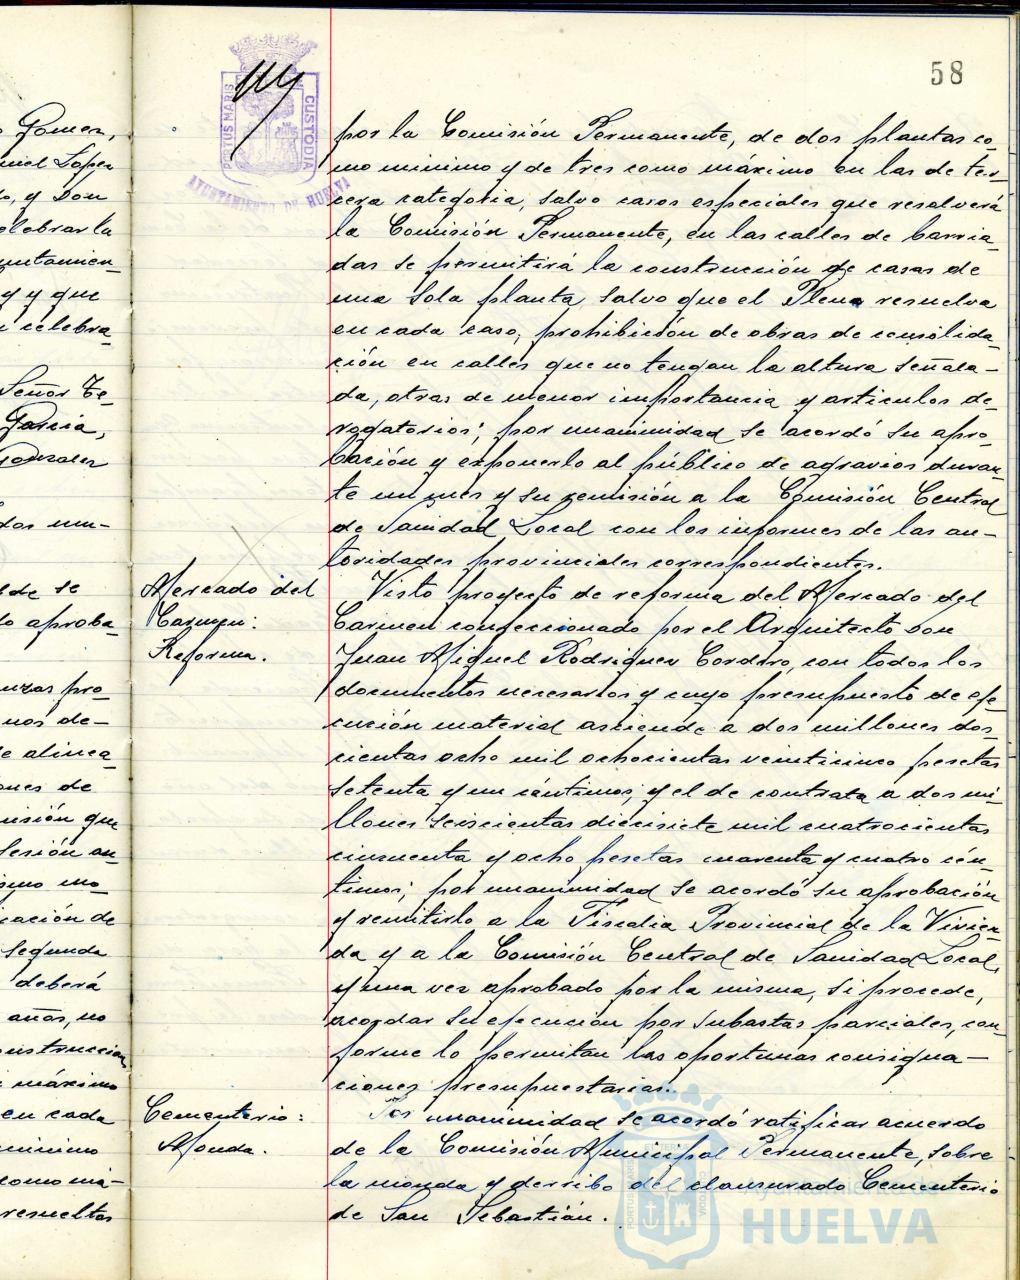 58
PORTUS MARIS
CUSTODIA
AYUNTAMIENTO DE HUELVA
Gomez,
niel Lopez
o, y Don
elebrar la
yuntamien-
y y que
celebra-
Señor Te-
Garcia,
Gonzalez
dos un-
de se
lo aproba-
nzas pro-
nos de-
e alinea-
ones de
misión que
Sesión an-
ismo mo-
cación de
segunda
deberá
años, no
onstruccion
máximo
en cada
minimo
como má-
resueltos
por la Comisión Permanente, de dos plantas co-
mo minimo y de tres como máximo en las de ter-
cera categoria, salvo casos especiales que resolverá
la Comisión Permanente, en las calles de barria-
das se permitirá la construcción de casas de
una sola planta, salvo que el Pleno resuelva
en cada caso, prohibición de obras de consolida-
ción en calles que no tengan la altura señala-
da, otras de menor importancia y articulos de-
rogatorios; por unanimidad se acordó su apro-
bación y exponerlo al público de agravios duran-
te un mes y su remisión a la Comisión Central
de Sanidad Local con los informes de las au-
toridades provinciales correspondientes.
Mercado del
Carmen:
Reforma.
Visto proyecto de reforma del Mercado del
Carmen confeccionado por el Arquitecto Don
Juan Miguel Rodriguez Cordero, con todos los
documentos necesarios y cuyo presupuesto de eje-
cución material asciende a dos millones dos-
cientas ocho mil ochocientas veinticinco pesetas
setenta y un céntimos; y el de contrata a dos mi-
llones seiscientas diecisiete mil cuatrocientas
cincuenta y ocho pesetas cuarenta y cuatro cén-
timos; por unanimidad se acordó su aprobación
y remitirlo a la Fiscalia Provincial de la Vivien-
da y a la Comisión Central de Sanidad Local,
y una vez aprobado por la misma, si procede,
acordar su ejecución por subastas parciales, con-
forme lo permitan las oportunas consigna-
ciones presupuestarias.
Cementerio:
Monda.
Por unanimidad se acordó ratificar acuerdo
de la Comisión Municipal Permanente, sobre
la monda y derribo del clausurado Cementerio
de San Sebastián.
Ayuntamiento de
HUELVA